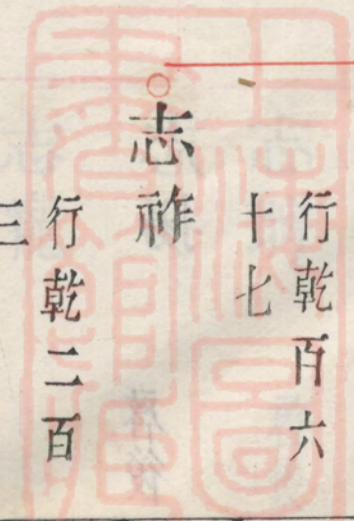 行乾百六
十七
志祚
行乾二百
三